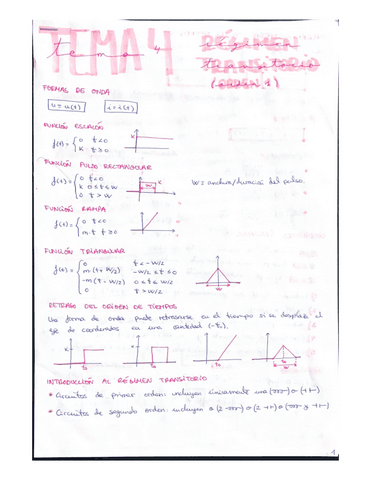 TEMA 4
tema 4
RÉGIMEN
régimen
TRANSITORIO
transitorio
(ORDEN 1)
FORMAS DE ONDA
u = u(t)   i = i(t)
FUNCIÓN ESCALÓN
f(t) = { 0 t < 0
K t ≥ 0
K
FUNCIÓN PULSO RECTANGULAR
f(t) = { 0 t < 0
K 0 ≤ t ≤ W
0 t > W
K
W
W = anchura/duración del pulso.
FUNCIÓN RAMPA
f(t) = { 0 t < 0
m·t t ≥ 0
FUNCIÓN TRIANGULAR
f(t) = { 0 t < -W/2
m(t + W/2) -W/2 ≤ t ≤ 0
-m(t - W/2) 0 ≤ t ≤ W/2
0 t > W/2
RETRASO DEL ORIGEN DE TIEMPOS
Una forma de onda puede retrasarse en el tiempo si se desplaza el
eje de coordenadas en una cantidad (-t₁).
K
INTRODUCCIÓN AL RÉGIMEN TRANSITORIO
* Circuitos de primer orden: incluyen únicamente una
* Circuitos de segundo orden: incluyen
1